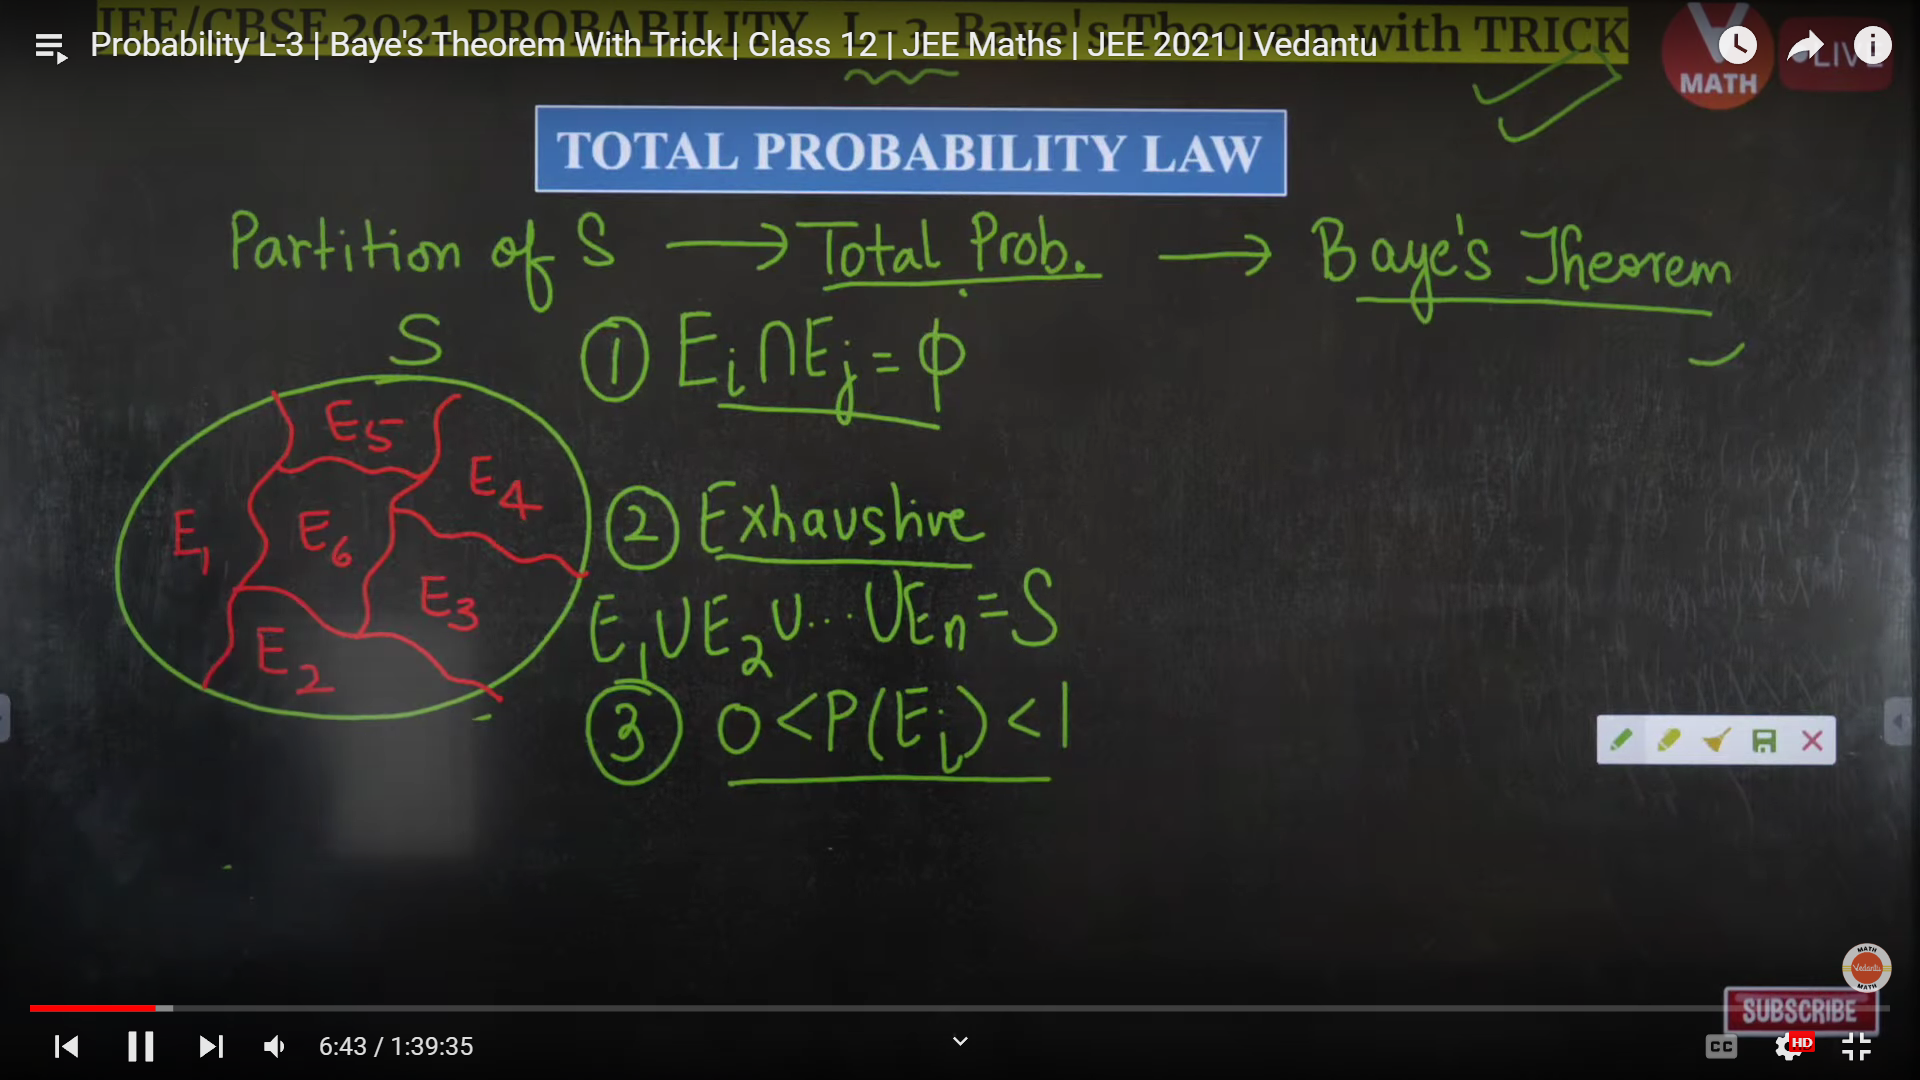 JEE/CBSE 2021 PROBABILITY L-3 Baye's Theorem with TRICK
Probability L-3 | Baye's Theorem With Trick | Class 12 | JEE Maths | JEE 2021 | Vedantu
MATH
LIVE
TOTAL PROBABILITY LAW
Partition of S → Total Prob. → Baye's Theorem
S
① Ei∩Ej = ϕ
E5
E4
E1
E6
② Exhaustive
E3
E1∪E2∪...∪En = S
E2
③ 0<P(Ei)<1
MATH
Vedantu
MATH
SUBSCRIBE
6:43 / 1:39:35
CC
HD